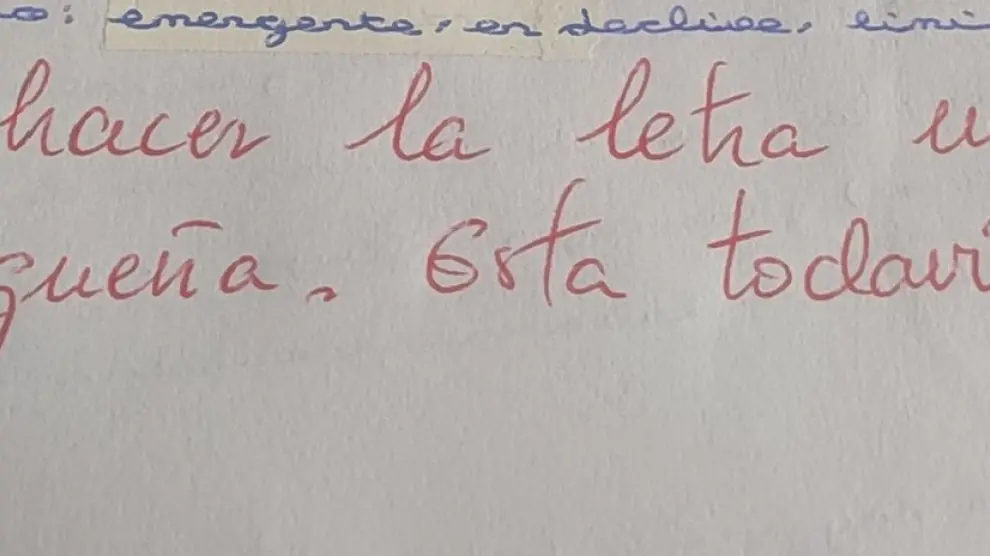 o: emergente, en declive, limi
hacer la letra u
queña. Esta todaví